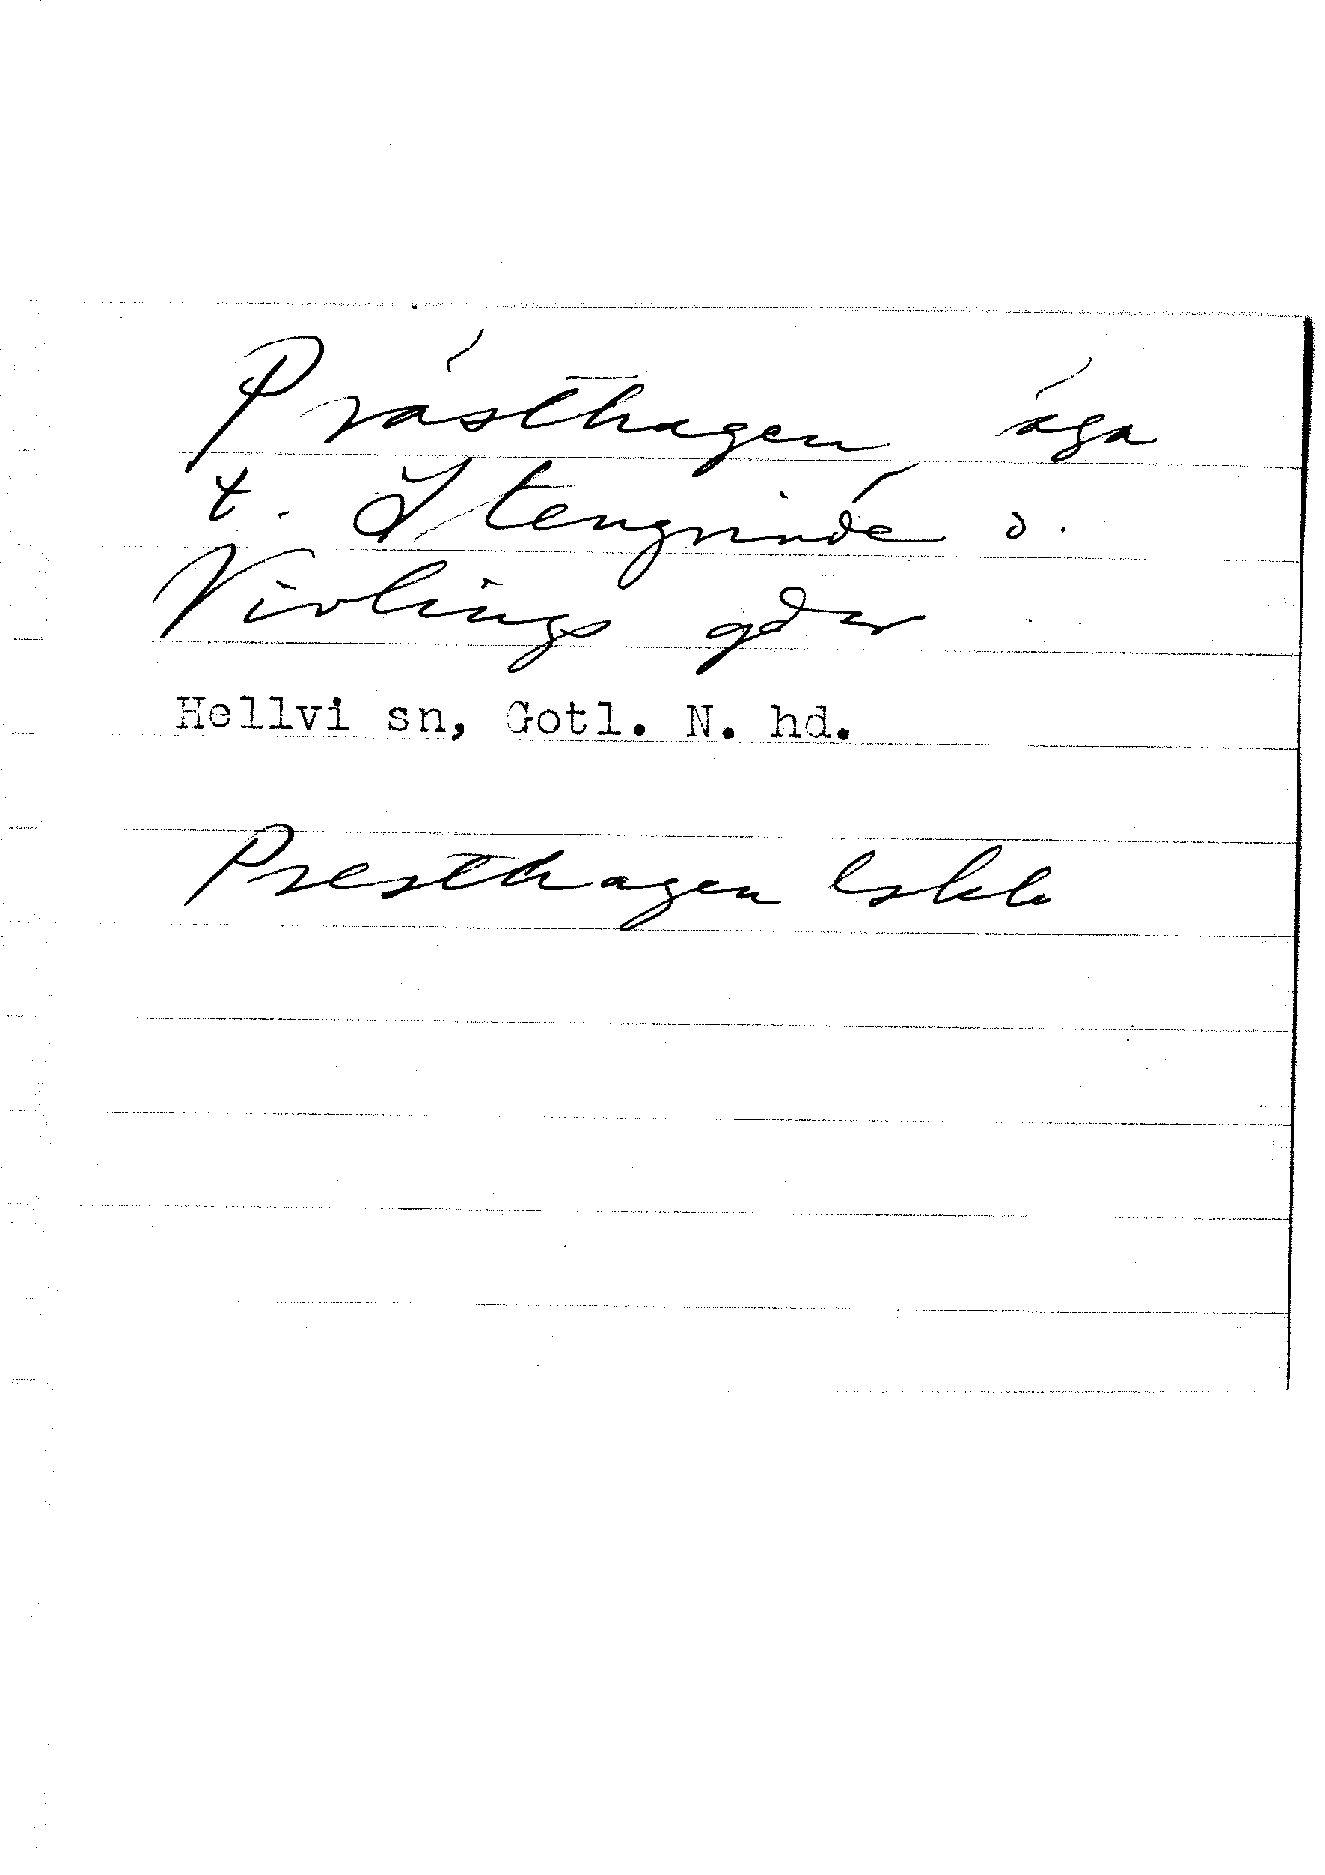 Prästhagen äga
t. Stengrinde o.
Vivlings gdr
Hellvi sn, Gotl. N. hd.
Presthagen lskb